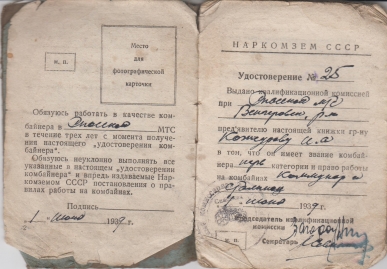 м. п.
Место
для
фотографической
карточки
Обязуюсь работать в качестве ком-
байнера в Спасской МТС
в течение трех лет с момента получе-
ния настоящего „удостоверения ком-
байнера“.
Обязуюсь неуклонно выполнять все
указанные в настоящем „удостоверении
комбайнера“ и впредь издаваемые Нар-
комземом СССР постановления о пра-
вилах работы на комбайнах.
Подпись
1 июня 1939 г.
НАРКОМЗЕМ СССР
Удостоверение № 25
Выдано квалификационной комиссией
при Спасской МТС
р-на
предъявителю настоящей книжки гр-ну
в том, что он имеет звание комбай-
нера категории и право работы
на комбайнах Коммунар и
Сталинец
1 июня 1939 г.
Председатель квалификационной
комиссии
м. п.
Секретарь